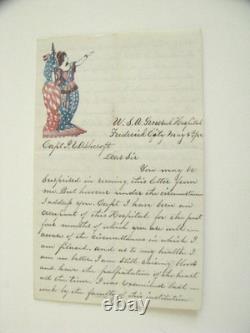 U.S.A. General Hospital
Frederick City May 8th
Capt.
Dear Sir
You may be
surprised in receiving this letter from
me. But however under the circumstances
I address you. Capt I have been an
of this Hospital for the past
four months of which you are well
aware of the circumstances in which I
am placed, and as to my health I
am no better. I am still raising blood
and have the palpitation of the heart
all the time. I was examined last
week by the faculty of this institution